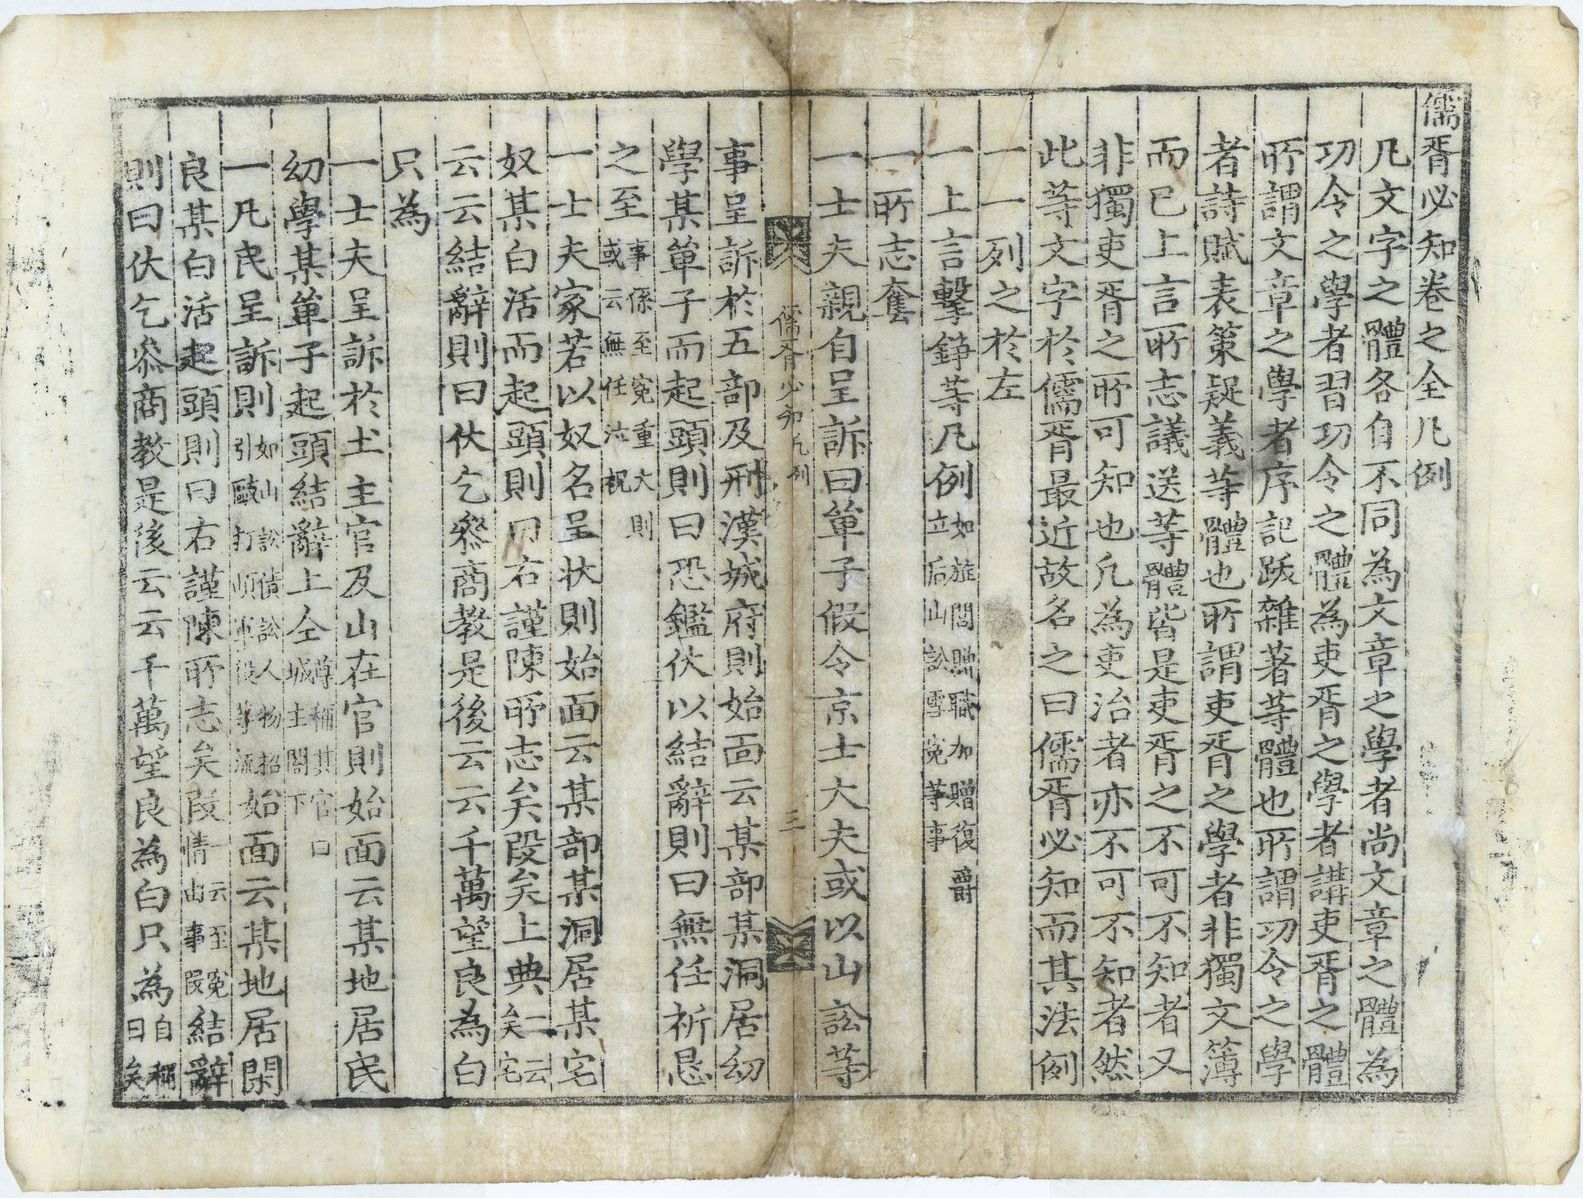 儒胥必知卷之全凡例
凡文字之體各自不同為文章之學者尚文章之體為
功令之學者習功令之體為吏胥之學者講吏胥之體
所謂文章之學者序記跋雜著等體也所謂功令之學
者詩賦表策疑義等體也所謂吏胥之學者非獨文簿
而已上言所志議送等體皆是吏胥之不可不知者又
非獨吏胥之所可知也凡為吏治者亦不可不知者然
此等文字於儒胥最近故名之曰儒胥必知而其法例
一一列之於左
一上言擊錚等凡例如旌閭贈職加贈復爵立后山訟雪冤等事
一所志套
一士夫親自呈訴曰單子假令京士大夫或以山訟等
儒胥必知凡例
三
事呈訴於五部及刑漢城府則始面云某部某洞居幼
學某單子而起頭則曰恐鑑伏以結辭則曰無任祈恳
之至事係至冤重大則或云無任泣祝
一士夫家若以奴名呈狀則始面云某部某洞居某宅
奴某白活而起頭則曰右謹陳所志矣段矣上典一云矣宅
云云結辭則曰伏乞叅商教是後云云千萬望良為白
只為
一士夫呈訴於土主官及山在官則始面云某地居民
幼學某單子起頭結辭上仝尊稱其官曰城主閤下
一凡民呈訴則如山訟債訟人人物招引毆打頉軍役等流始面云某地居閑
良某白活起頭則曰右謹陳所志矣段情由事段云至冤結辭
則曰伏乞叅商教是後云云千萬望良為白只為自稱曰矣